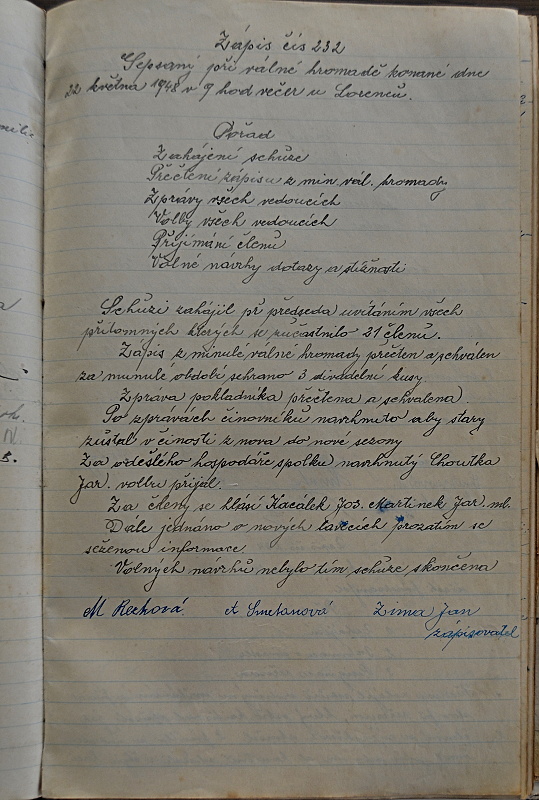 Zápis čís 232
Sepsaný při válné hromadě konané dne
22 května 1948 v 9 hod večer u Lorenců.
Pořad
Zahájení schůze
Přečtení zápisu z min. vál. hromady
Zprávy všech vedoucích
Volby všech vedoucích
Přijímání členů
Volné návrhy dotazy a stížnosti
Schůzi zahájil př předseda uvítáním všech
přítomných kterých se zúčastnilo 21 členů.
Zápis z minulé válné hromady přečten a schválen
za minulé období sehrano 3 divadelní kusy
Zpráva pokladníka přečtena a schvalena.
Po zprávách činovníků navrhnuto aby starý
zůstal v činosti z nova do nové sezony
Za odešlého hospodáře spolku navrhnutý Choutka
Jar. volbu přijal.
Za členy se hlásí Kacálek Jos. Martinek Jar. ml.
Dále jednáno o nových lavicích prozatím se
seženou informace.
Volnych návrhů nebylo tím schůze skončena
M Rechová A Smetanová Zima Jan
zápisovatel